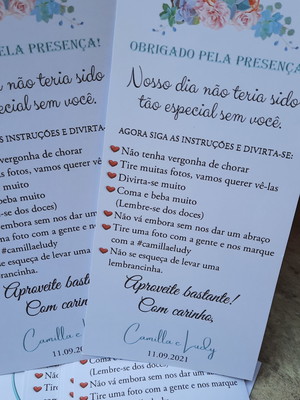 OBRIGADO PELA PRESENÇA
Nosso dia não teria sido
tão especial sem você.
AGORA SIGA AS INSTRUÇÕES E DIVIRTA-SE:
Não tenha vergonha de chorar
Tire muitas fotos, vamos querer vê-las
Divirta-se muito
Coma e beba muito
(Lembre-se dos doces)
Não vá embora sem nos dar um abraço
Tire uma foto com a gente e nos marque
com a #camillaeludy
Não se esqueça de levar uma
lembrancinha.
Aproveite bastante!
Com carinho,
Camilla e Ludy
11.09.2021
ELA PRESENÇA!
não teria sido
special sem você.
AS INSTRUÇÕES E DIVIRTA
vergonha de chorar
tas fotos, vamos querer vê
se muito
beba muito
re-se dos doces)
embora sem nos dar um
ma foto com a gente e no
a #camillaeludy
se esqueça de levar uma
brancinha.
Aproveite bastante
Com carinho,
Camilla e
11.09.2021
(Lembre-se dos doces)
Não vá embora sem nos dar um abraço
Tire uma foto com a gente e nos marque